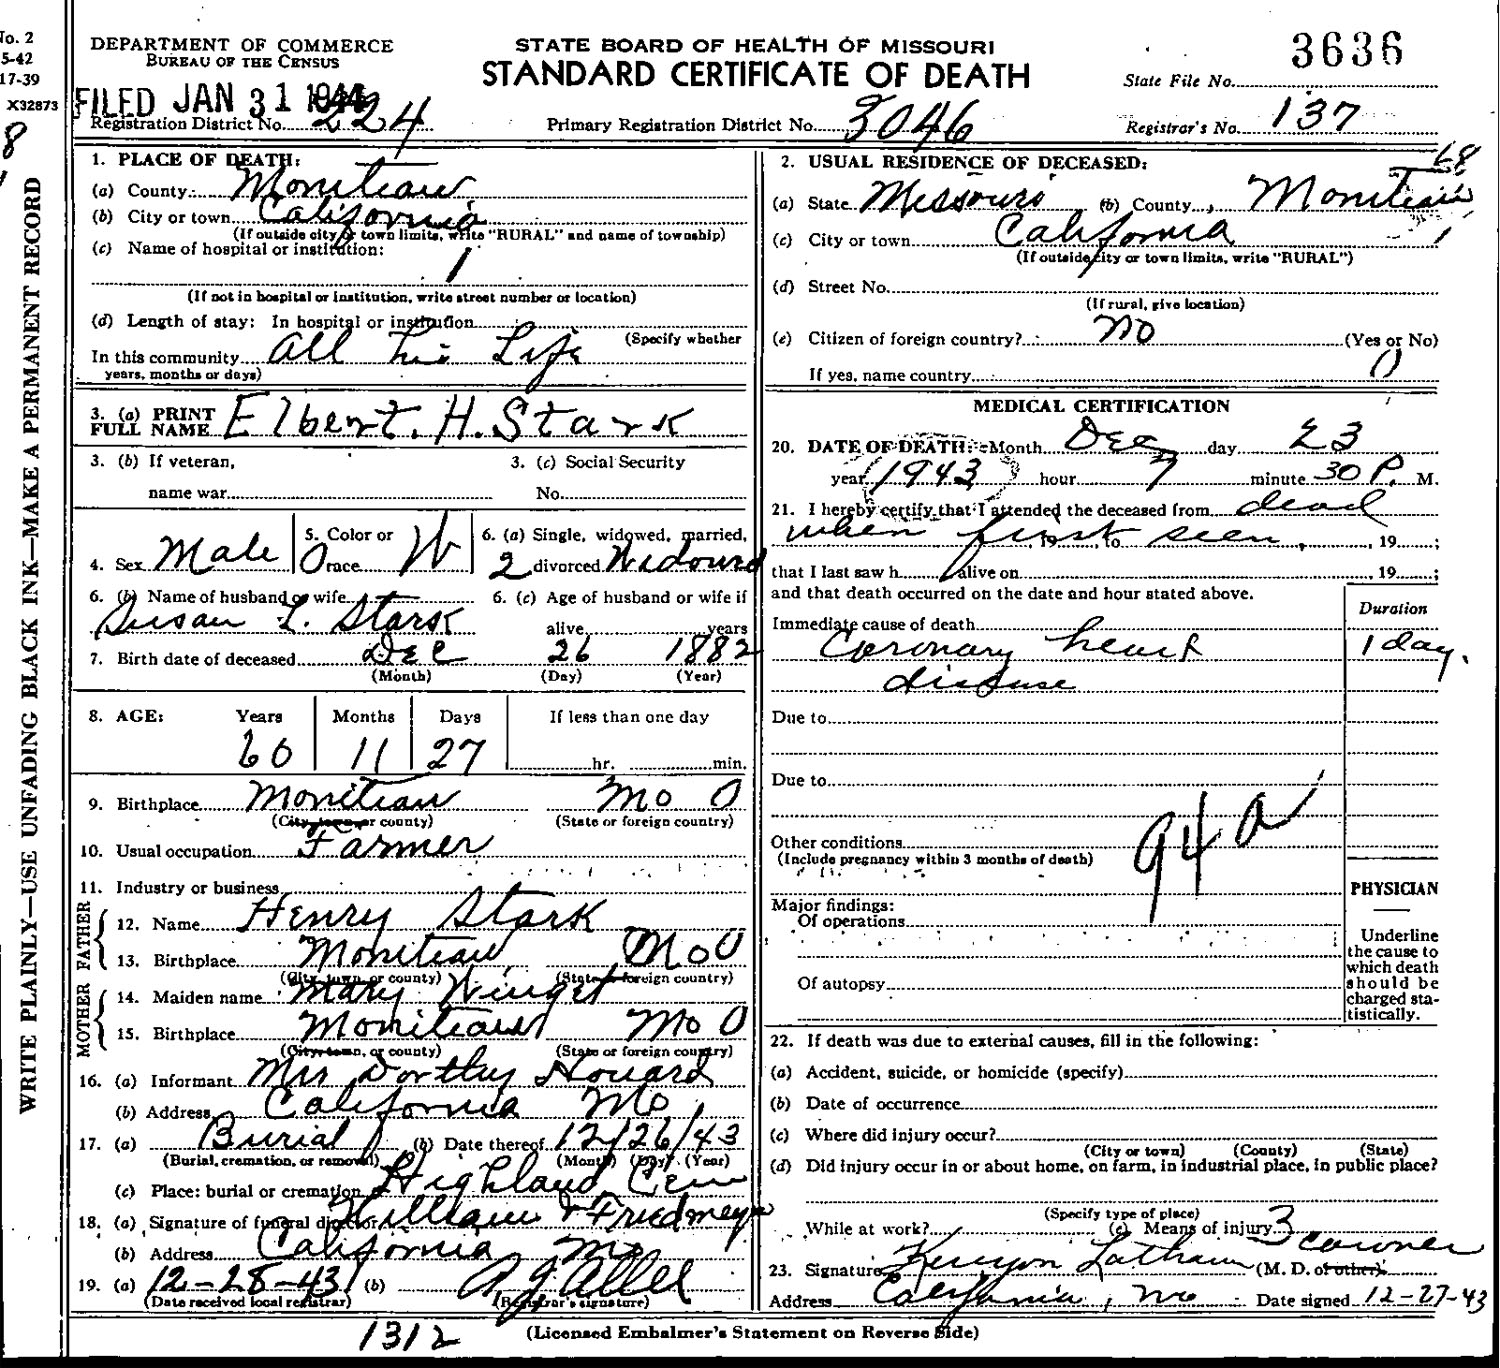 No. 2
5-42
17-39
X32873
8
WRITE PLAINLY—USE UNFADING BLACK INK—MAKE A PERMANENT RECORD
DEPARTMENT OF COMMERCE
BUREAU OF THE CENSUS
STATE BOARD OF HEALTH OF MISSOURI
STANDARD CERTIFICATE OF DEATH
State File No. 3636
FILED JAN 31 1944
Registration District No. 224
Primary Registration District No. 3046
Registrar's No. 137
1. PLACE OF DEATH:
(a) County: Moniteau
(b) City or town California
(If outside city or town limits, write "RURAL" and name of township)
(c) Name of hospital or institution:
1
(If not in hospital or institution, write street number or location)
(d) Length of stay: In hospital or institution
(Specify whether
In this community All his Life
years, months or days)
2. USUAL RESIDENCE OF DECEASED: 68
(a) State Missouri (b) County Moniteau
(c) City or town California 1
(If outside city or town limits, write "RURAL")
(d) Street No.
(If rural, give location)
(e) Citizen of foreign country? no (Yes or No)
If yes, name country 0
3. (a) PRINT FULL NAME Elbert. H. Stark
3. (b) If veteran, name war
3. (c) Social Security No.
4. Sex Male
5. Color or race W
6. (a) Single, widowed, married, divorced Widowed
2
6. (b) Name of husband or wife Susan L. Stark
6. (c) Age of husband or wife if alive years
7. Birth date of deceased Dec 26 1882
(Month) (Day) (Year)
8. AGE: Years Months Days If less than one day
60 11 27 hr. min.
9. Birthplace Moniteau Mo 0
(City, town, or county) (State or foreign country)
10. Usual occupation Farmer
11. Industry or business
FATHER
12. Name Henry Stark
13. Birthplace Moniteau Mo 0
(City, town, or county) (State or foreign country)
MOTHER
14. Maiden name Mary Winget
15. Birthplace Moniteau Mo 0
(City, town, or county) (State or foreign country)
16. (a) Informant Mrs Dorthy Howard
(b) Address California Mo
17. (a) Burial (b) Date thereof 12/26/43
(Burial, cremation, or removal) (Month) (Day) (Year)
(c) Place: burial or cremation Highland Cem
18. (a) Signature of funeral director William & Friedmeyer
(b) Address California Mo
19. (a) 12-28-43 (b)
(Date received local registrar) (Registrar's signature)
MEDICAL CERTIFICATION
20. DATE OF DEATH: Month Dec day 23
year 1943 hour 7 minute 30 P. M.
21. I hereby certify that I attended the deceased from dead
when first seen, 19 ;
that I last saw h alive on , 19 ;
and that death occurred on the date and hour stated above.
Duration
Immediate cause of death
Coronary heart 1 day.
disease
Due to
Due to
94a
Other conditions
(Include pregnancy within 3 months of death)
Major findings:
Of operations
Of autopsy
PHYSICIAN
Underline
the cause to
which death
should be
charged sta-
tistically.
22. If death was due to external causes, fill in the following:
(a) Accident, suicide, or homicide (specify)
(b) Date of occurrence
(c) Where did injury occur?
(City or town) (County) (State)
(d) Did injury occur in or about home, on farm, in industrial place, in public place?
(Specify type of place)
While at work? (e) Means of injury 3
coroner
23. Signature Kenyon Latham (M. D. or other)
Address California, Mo Date signed 12-27-43
1312
(Licensed Embalmer's Statement on Reverse Side)